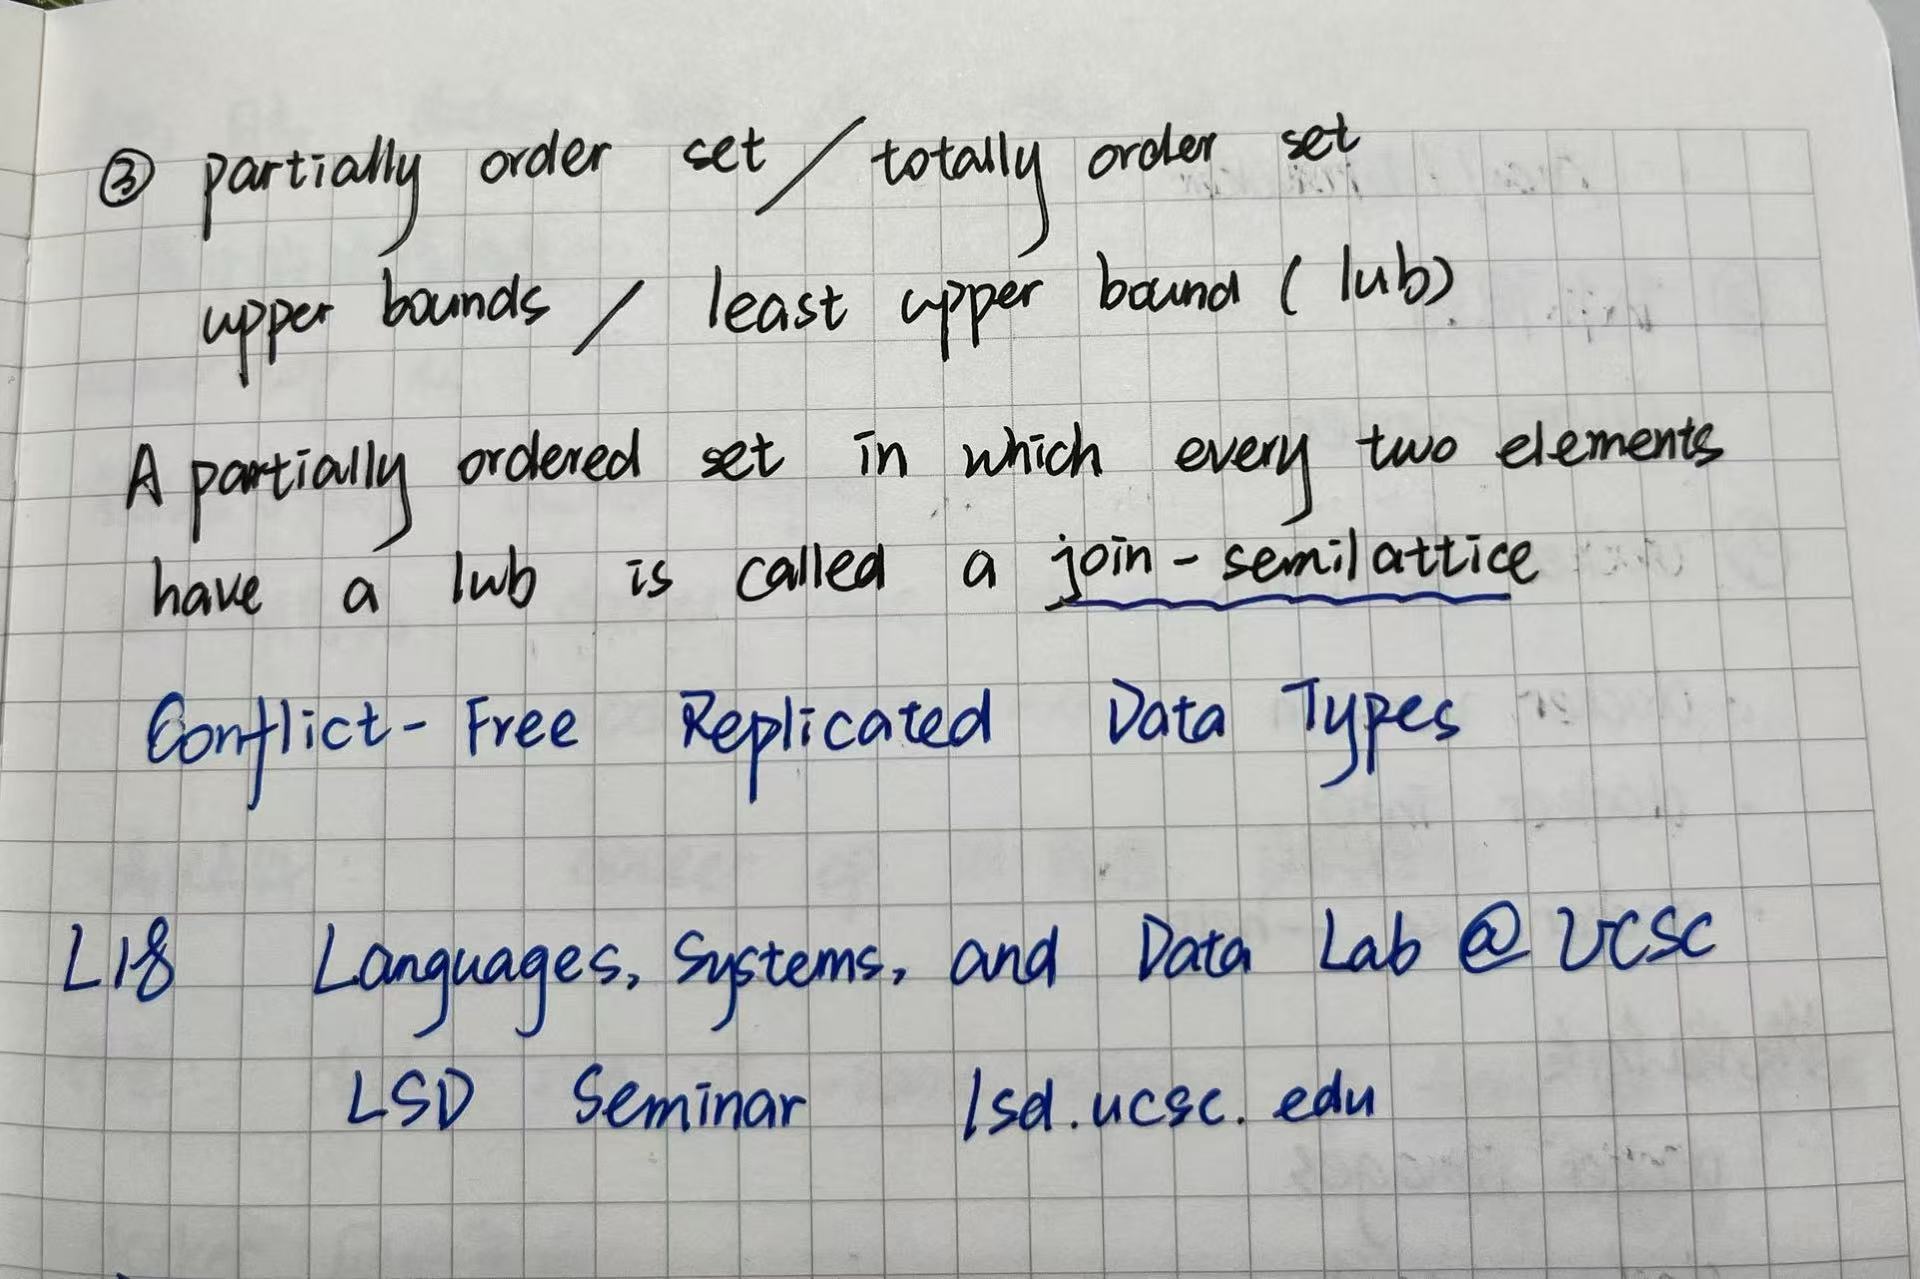 ③ partially order set / totally order set
upper bounds / least upper bound ( lub)
A partially ordered set in which every two elements
have a lub is called a join-semilattice
Conflict-Free Replicated Data Types
L18 Languages, Systems, and Data Lab @ UCSC
LSD Seminar lsd.ucsc.edu